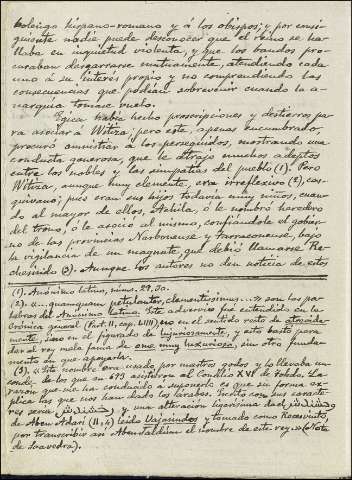 bolengo hispano-romano y á los obispos; y por consi-
guiente nadie puede desconocer que el reino se ha-
llaba en inquietud violenta, y que los bandos pro-
curaban desgarrarse mutuamente, atendiendo cada
uno á su interés propio y no comprendiendo las
consecuencias que podian sobrevenir cuando la a-
narquia tomase vuelo.
Egica habia hecho proscripciones y destierros pa-
ra asociar á Witiza; pero este, apenas encumbrado,
procuró amnistiar á los perseguidos, mostrando una
conducta generosa, que le atrajo muchos adeptos
entre los nobles y las simpatías del pueblo (1). Pero
Witiza, aunque muy clemente, era irreflexivo (2), cas-
quivano; pues eran sus hijos todavia muy niños, cuan-
do al mayor de ellos, Achila, ó le nombró heredero
del trono, ó le asoció al mismo, confiándole el gobier-
no de las provincias Narbonense y Tarraconense, bajo
la vigilancia de un magnate, que debió llamarse Re-
chesindo (3). Aunque los autores no den noticia de estos
(1). Anónimo latino, núms. 29, 30.
(2). «....quamquam petulanter, clementissimus...» son las pa-
labras del Anónimo latino. Este adverbio fué entendido en la
Crónica general (Part. II, cap. LVIII) no en el sentido recto de atrevida-
mente, sino en el figurado de lujuriosamente, y esto bastó para
dar al rey mala fama de ome muy luxurioso, sin otro funda-
mento en que apoyarla.
(3). «Este nombre era usado por nuestros godos y lo llevaba un
conde de los que en 693 asistieron al Concilio XVI de Toledo. La
razon que me ha conducido á suponerlo es que su forma ex-
plica las que nos han dado los árabes. Escrito con sus caracte-
res seria y una alteracion ligerísima del
de Aben Adarí (II, 4) leido Vajasindos y tomado como Recesvinto,
por transcribir asi Abenjaldún el nombre de este rey.» (Nota
de Saavedra).